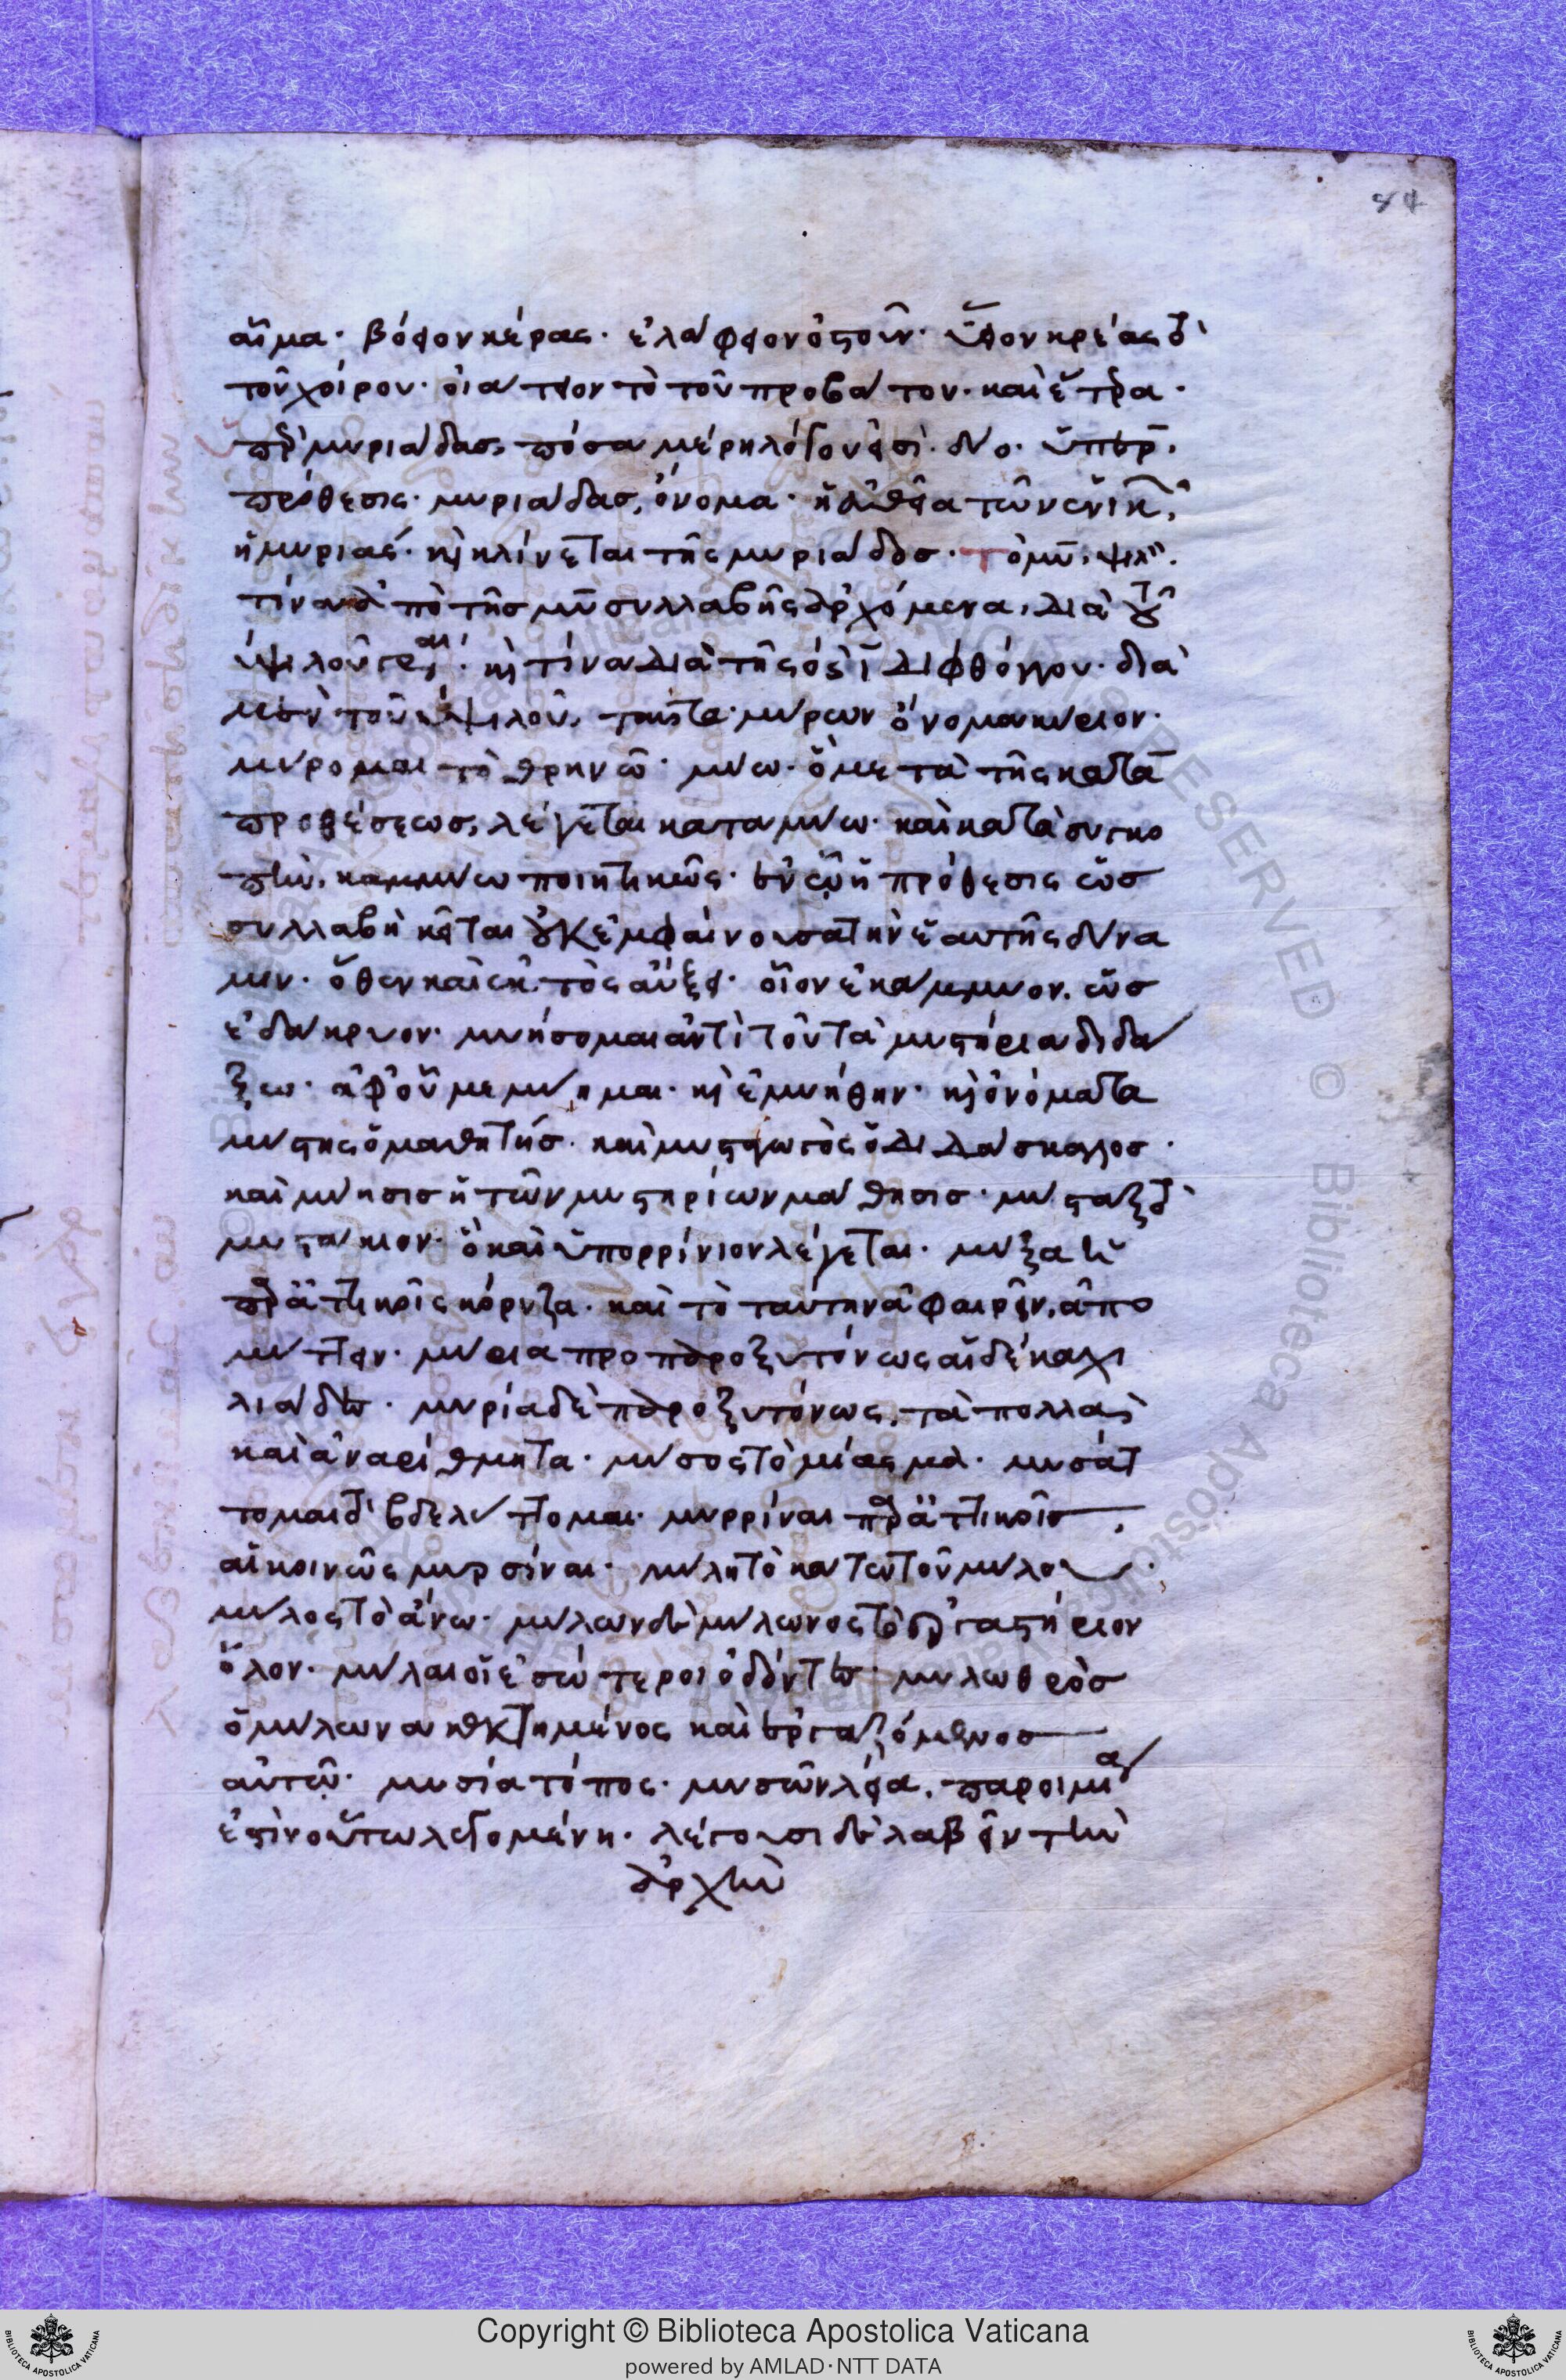 84
αἷμα· βόειον κέρας· ἐλάφφειον ὀστοῦν· ὕειον κρέας τὸ
τοῦ χοίρου· οἰάττειον τὸ τοῦ προβάτου· καὶ ἕτερα·
μυριάδας, πόσα μέρη λόγου εἰσί· δύο· ὑπὲρ,
πρόθεσις· μυριάδας, ὄνομα· ἡ εὐθεῖα τῶν ἑνικῶν,
ἡ μυριάς· καὶ κλίνεται τῆς μυριάδος· τὸ μυ, ψιλόν·
τίνα ἀπὸ τῆς μυ συλλαβῆς ἀρχόμενα, διὰ τοῦ
ὑψιλοῦ γράφεται· καὶ τίνα διὰ τῆς οι διφθόγγου· διὰ
μὲν τοῦ υ ψιλοῦ, ταῦτα· μύρων ὄνομα κύριον·
μύρομαι τὸ θρηνῶ· μύω· ὃ μετὰ τῆς κατὰ
προθέσεως, λέγεται καταμύω· καὶ κατὰ συγκο
πὴν, καμμύω ποιητικῶς· ἐν ᾧ ἡ πρόθεσις ὡς
συλλαβὴ κεῖται οὐκ ἐμφαίνουσα τὴν ἑαυτῆς δύνα
μιν· ὅθεν καὶ ἐκτὸς αὔξει· οἷον ἐκάμμυον, ὡς
ἐδάκρυον· μυήσομαι ἀντὶ τοῦ τὰ μυστήρια διδά
ξω· ἀφ' οὗ μεμύημαι· καὶ ἐμυήθην· καὶ ὀνόματα
μύστης ὁ μαθητής· καὶ μυσταγωγὸς ὁ διδάσκαλος·
καὶ μύησις ἡ τῶν μυστηρίων μάθησις· μύσταξ τὸ
μυστάκιον· ὃ καὶ ὑπορρίνιον λέγεται· μύξα ἡ
παρ' ἀττικοῖς κόρυζα· καὶ τὸ ταύτην ἀφαιρεῖν, ἀπο
μύττειν· μύρια προπαροξυτόνως αἱ δέκα χι
λιάδες· μυρία δὲ παροξυτόνως, τὰ πολλὰ
καὶ ἀναρίθμητα· μύσος τὸ μίασμα· μυσάτ
τομαι τὸ βδελύττομαι· μυρρίναι παρ' ἀττικοῖς,
αἱ κοινῶς μυρσίναι· μύλη τὸ κάτω τοῦ μύλου·
μύλος τὸ ἄνω· μύλων δὲ μύλωνος τὸ ἐργαστήριον
ὅλον· μύλαι οἱ ἐσώτεροι ὀδόντες· μυλωθρὸς
ὁ μύλωνα κεκτημένος καὶ ἐργαζόμενος
αὐτῷ· μυσία τόπος· μυσῶν λεία, παροιμία
ἐστὶν οὕτω λεγομένη· λέγουσι δὲ λαβεῖν τὴν
ἀρχὴν
Copyright © Biblioteca Apostolica Vaticana
powered by AMLAD·NTT DATA